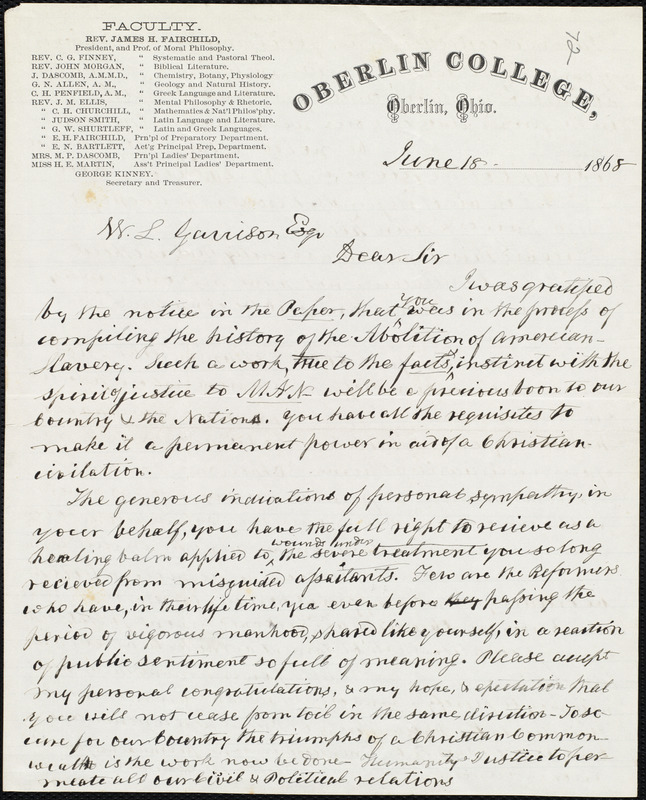 FACULTY.
REV. JAMES H. FAIRCHILD,
President, and Prof. of Moral Philosophy.
REV. C. G. FINNEY, " Systematic and Pastoral Theol.
REV. JOHN MORGAN, " Biblical Literature.
J. DASCOMB, A.M.M.D., " Chemistry, Botany, Physiology
G. N. ALLEN, A. M., " Geology and Natural History.
C. H. PENFIELD, A. M., " Greek Language and Literature.
REV. J. M. ELLIS, " Mental Philosophy & Rhetoric.
" C. H. CHURCHILL, " Mathematics & Nat'l Philos'phy.
" JUDSON SMITH, " Latin Language and Literature.
" G. W. SHURTLEFF, " Latin and Greek Languages.
" E. H. FAIRCHILD, Prn'pl of Preparatory Department.
" E. N. BARTLETT, Act'g Principal Prep, Department.
MRS. M. P. DASCOMB, Prn'pl Ladies' Department.
MISS H. E. MARTIN, Ass't Principal Ladies' Department.
GEORGE KINNEY.
Secretary and Treasurer.
72
OBERLIN COLLEGE,
Oberlin, Ohio.
June 18 1868
W. L. Garrison Esqr
Dear Sir
I was gratified
by the notice in the Paper, that you was in the process of
compiling the history of the Abolition of American
Slavery. Such a work, true to the facts, instinct with the
spirit of justice to MAN will be a precious boon to our
Country & the Nations. You have all the requisites to
make it a permanent power in aid of a Christian
civilation.
The generous indications of personal sympathy, in
your behalf, you have the full right to recieve as a
healing balm applied to wounds under the severe treatment you so long
recieved from misguided assaitants. Few are the Reformers
who have, in their life time, yea even before they passing the
period of vigorous manhood, shared like yourself, in a reaction
of public sentiment so full of meaning. Please accept
my personal congratulations, & my hope, & expectation that
you will not cease from toil in the same direction - To se-
cure for our Country the triumphs of a Christian Common-
wealth is the work now be done - Humanity & Justice to per-
meate all our Civil & Political relations